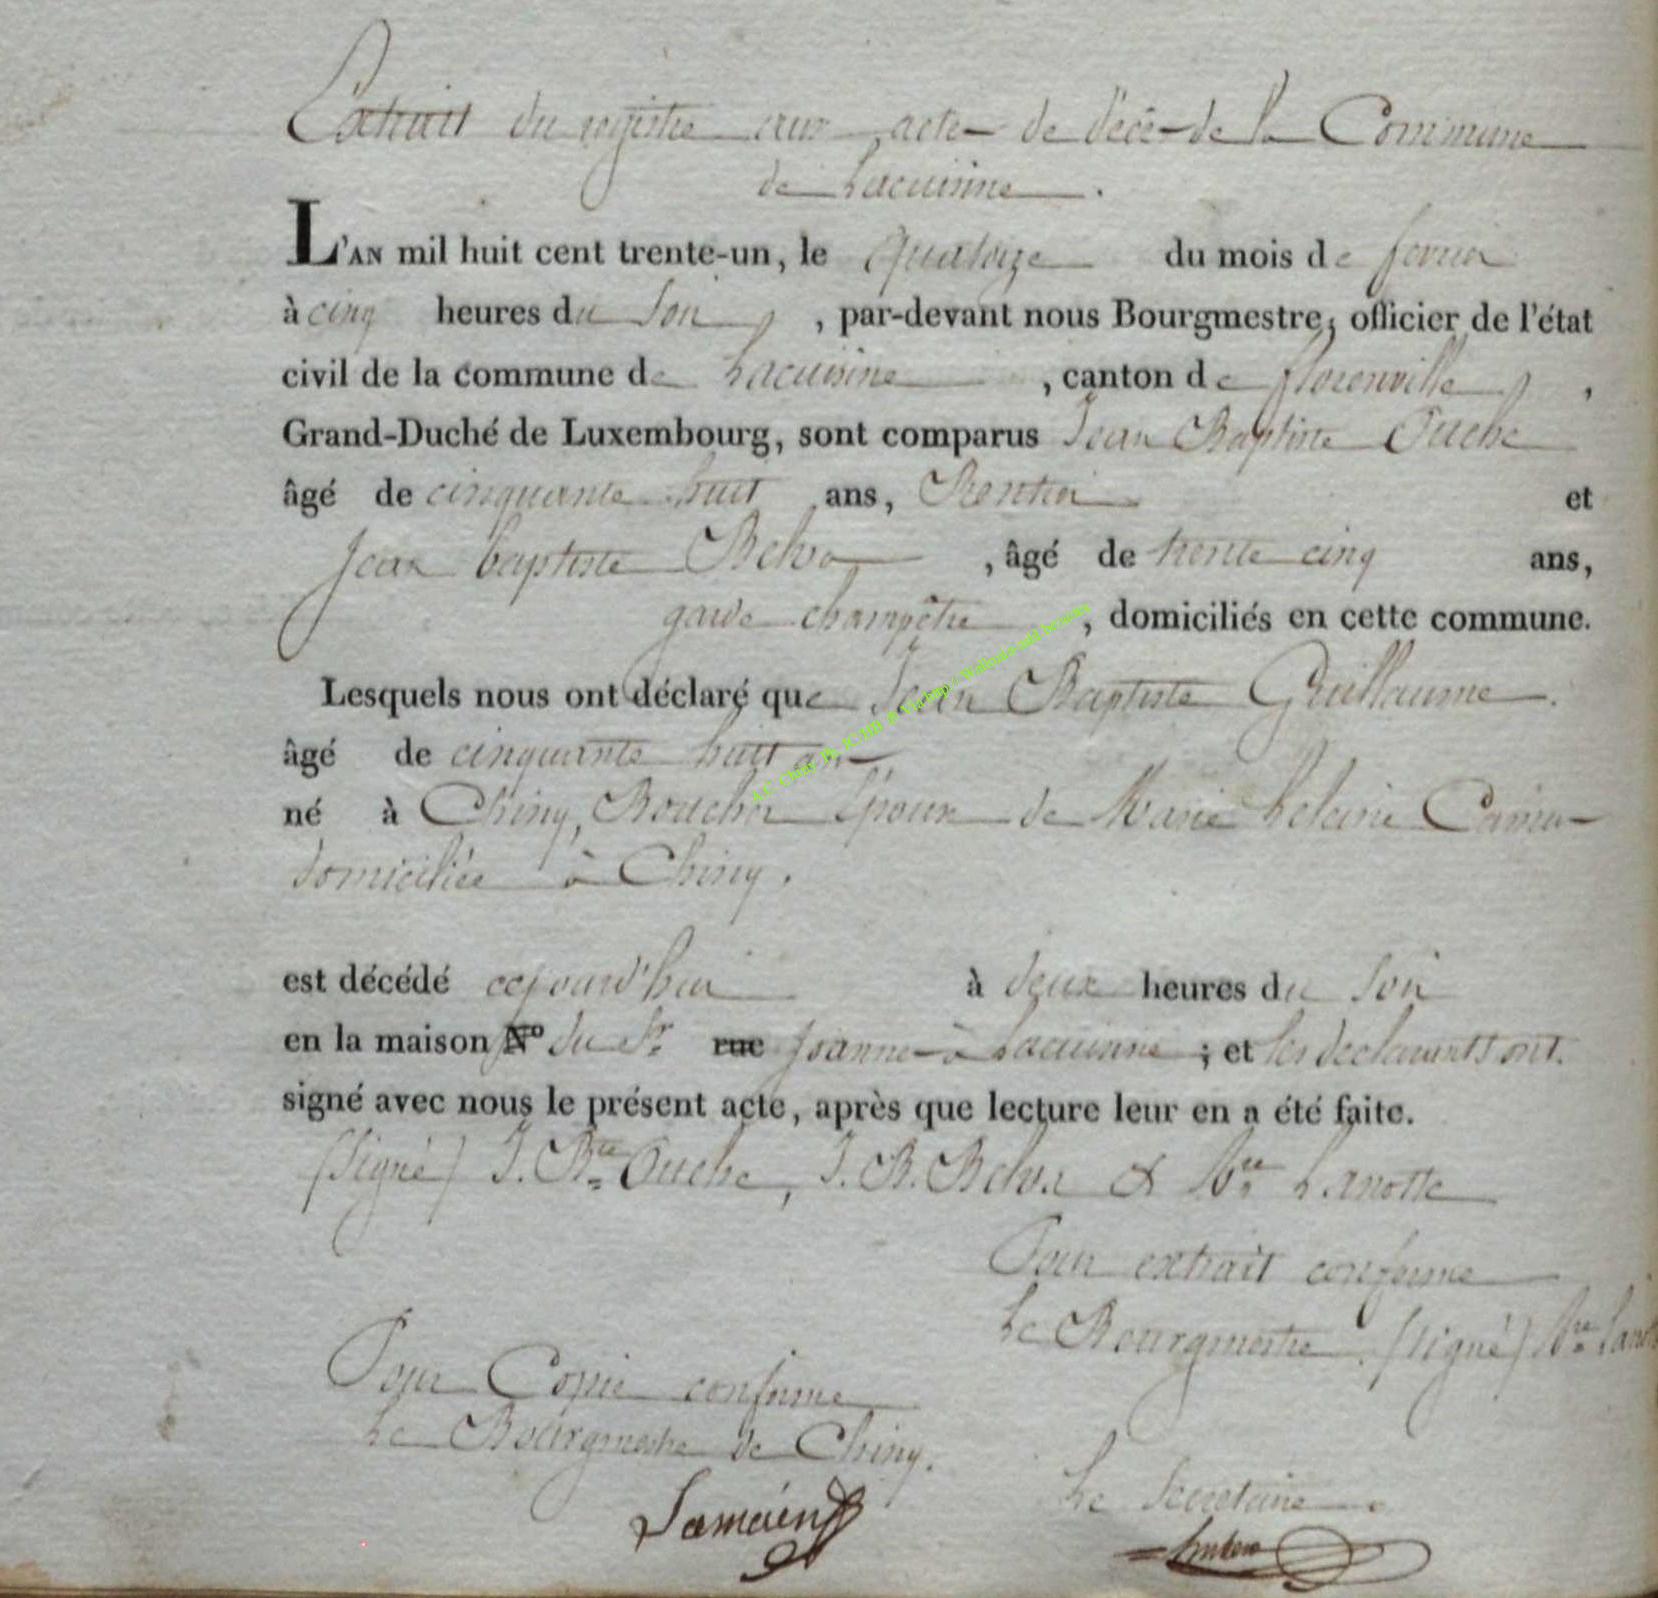 Extrait du registre aux actes de décès de la Commune
de Lacuisine.
L'AN mil huit cent trente-un, le quatorze du mois de fevrier
à cinq heures du Soir, par-devant nous Bourgmestre, officier de l'état
civil de la commune de Lacuisine, canton de florenville,
Grand-Duché de Luxembourg, sont comparus Jean Baptiste Ouche
âgé de cinquante huit ans, Rentier et
Jean baptiste Belva, âgé de trente cinq ans,
garde champêtre, domiciliés en cette commune.
Lesquels nous ont déclaré que Jean Baptiste Guillaume.
âgé de cinquante huit ans
né à Chiny, Boucher Epoux de Marie heleine Camus
domiciliée à Chiny.
est décédé cejourd'hui à deux heures du Soir
en la maison N° du Sr. rue Joannes à Lacuisine; et les declarants ont.
signé avec nous le présent acte, après que lecture leur en a été faite.
(Signé) J. Bte Ouche, J. B. Belva & Lanotte
Pour extrait conforme
Le Bourgmestre. (signé)
Pour Copie conforme
Le Bourgmestre de Chiny.
Le Secretaire.
A.C. Chiny